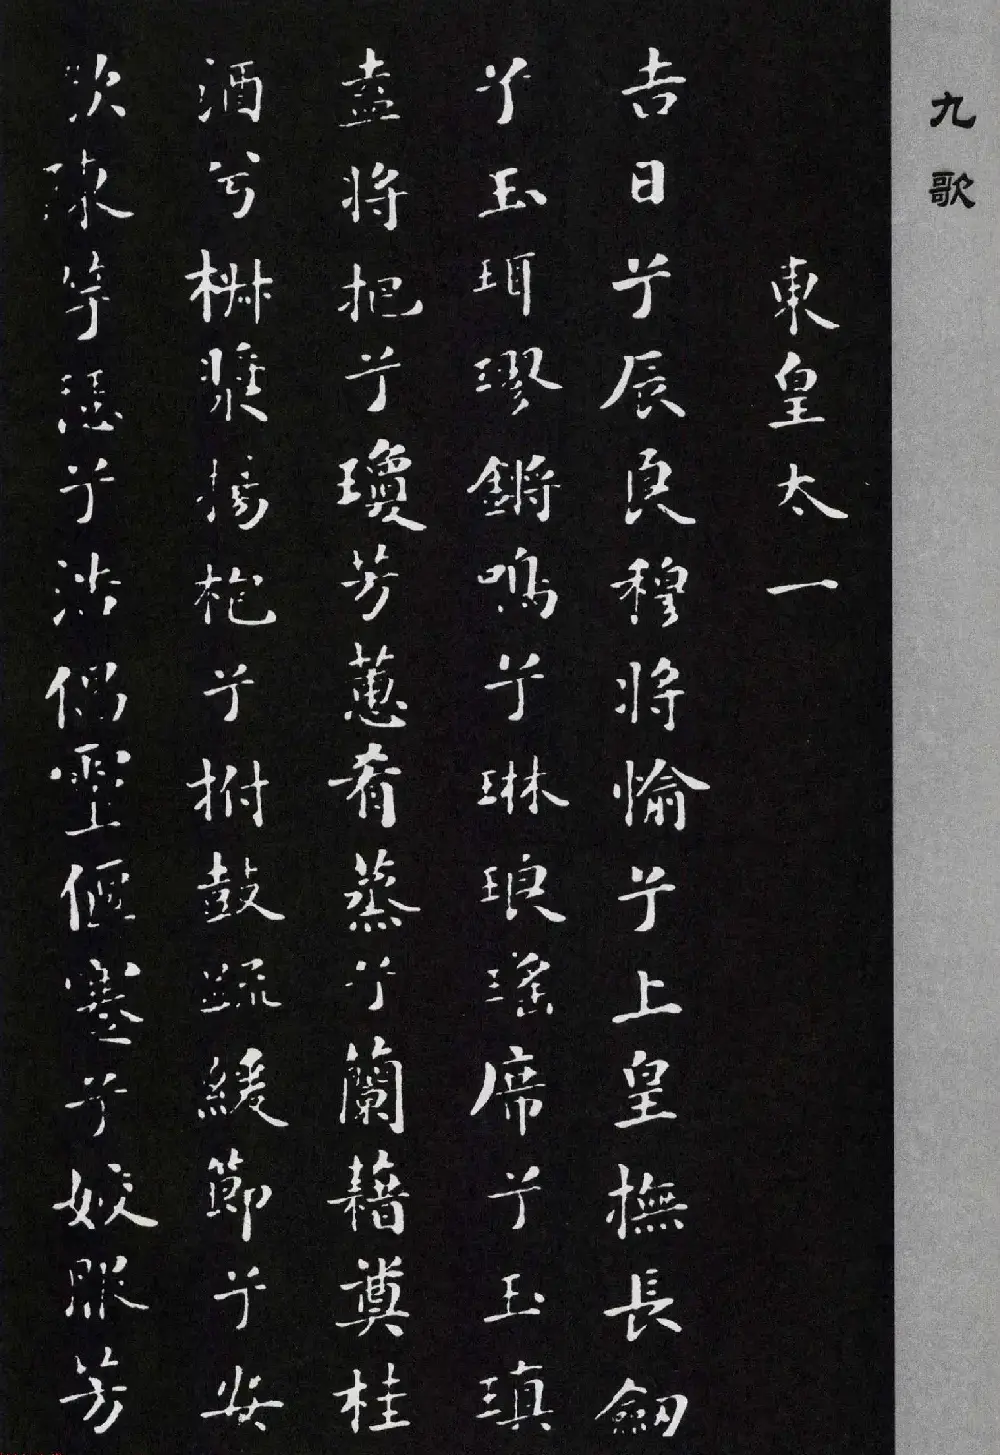 九歌
東皇太一
吉日兮辰良穆將愉兮上皇撫長劒
兮玉珥璆鏘鳴兮琳琅瑤席兮玉瑱
盍將把兮瓊芳蕙肴蒸兮蘭藉奠桂
酒兮椒漿揚枹兮拊鼓疏緩節兮安
歌陳竽瑟兮浩倡靈偃蹇兮姣服芳